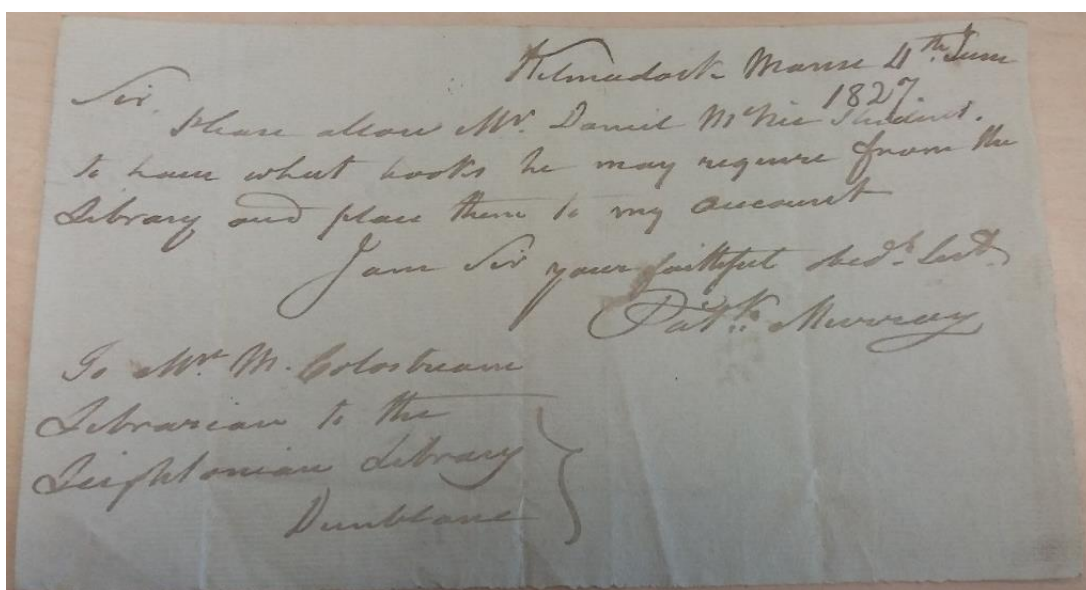 Kilmadock Manse 4th June
1827
Sir
Please allow Mr. Daniel McNie Student.
to have what books he may require from the
Library and place them to my account
I am Sir your faithful obedt. Servt.
Patk. Murray
To Mr. M. Coldstream
Librarian to the
Leightonian Library
Dunblane